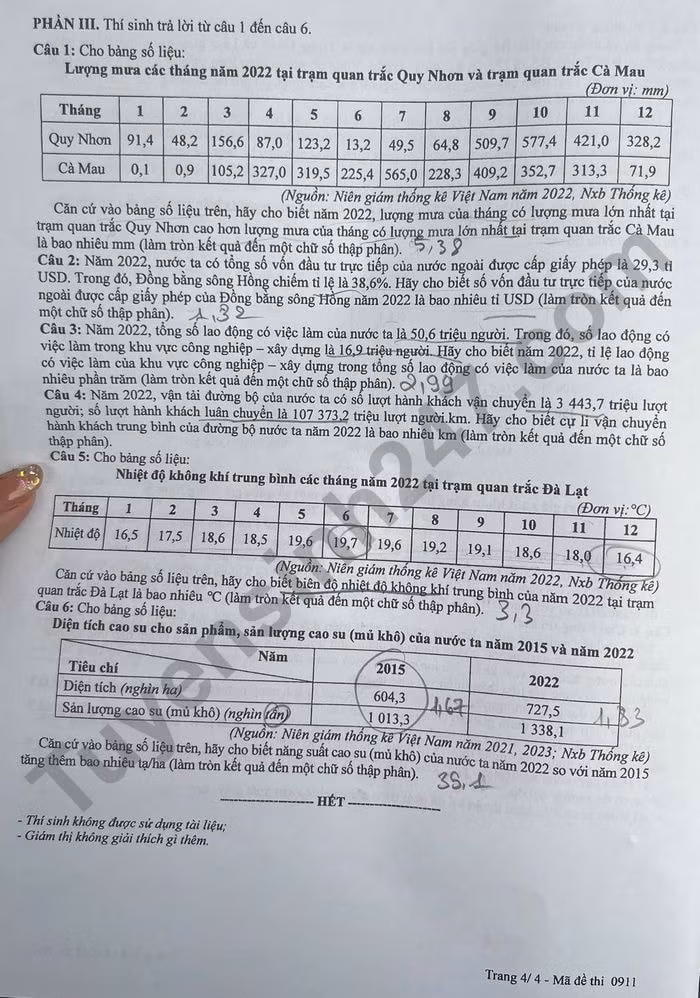 PHẦN III. Thí sinh trả lời từ câu 1 đến câu 6.
Câu 1: Cho bảng số liệu:
Lượng mưa các tháng năm 2022 tại trạm quan trắc Quy Nhơn và trạm quan trắc Cà Mau
(Đơn vị: mm)
Tháng 1 2 3 4 5 6 7 8 9 10 11 12
Quy Nhơn 91,4 48,2 156,6 87,0 123,2 13,2 49,5 64,8 509,7 577,4 421,0 328,2
Cà Mau 0,1 0,9 105,2 327,0 319,5 225,4 565,0 228,3 409,2 352,7 313,3 71,9
(Nguồn: Niên giám thống kê Việt Nam năm 2022, Nxb Thống kê)
Căn cứ vào bảng số liệu trên, hãy cho biết năm 2022, lượng mưa của tháng có lượng mưa lớn nhất tại
trạm quan trắc Quy Nhơn cao hơn lượng mưa của tháng có lượng mưa lớn nhất tại trạm quan trắc Cà Mau
là bao nhiêu mm (làm tròn kết quả đến một chữ số thập phân). 5,38
Câu 2: Năm 2022, nước ta có tổng số vốn đầu tư trực tiếp của nước ngoài được cấp giấy phép là 29,3 tỉ
USD. Trong đó, Đồng bằng sông Hồng chiếm tỉ lệ là 38,6%. Hãy cho biết số vốn đầu tư trực tiếp của nước
ngoài được cấp giấy phép của Đồng bằng sông Hồng năm 2022 là bao nhiêu tỉ USD (làm tròn kết quả đến
một chữ số thập phân). 1,32
Câu 3: Năm 2022, tổng số lao động có việc làm của nước ta là 50,6 triệu người. Trong đó, số lao động có
việc làm trong khu vực công nghiệp – xây dựng là 16,9 triệu người. Hãy cho biết năm 2022, tỉ lệ lao động
có việc làm của khu vực công nghiệp – xây dựng trong tổng số lao động có việc làm của nước ta là bao
nhiêu phần trăm (làm tròn kết quả đến một chữ số thập phân). 2,99
Câu 4: Năm 2022, vận tải đường bộ của nước ta có số lượt hành khách vận chuyển là 3 443,7 triệu lượt
người; số lượt hành khách luân chuyển là 107 373,2 triệu lượt người.km. Hãy cho biết cự li vận chuyển
hành khách trung bình của đường bộ nước ta năm 2022 là bao nhiêu km (làm tròn kết quả đến một chữ số
thập phân).
Câu 5: Cho bảng số liệu:
Nhiệt độ không khí trung bình các tháng năm 2022 tại trạm quan trắc Đà Lạt
(Đơn vị:°C)
Tháng 1 2 3 4 5 6 7 8 9 10 11 12
Nhiệt độ 16,5 17,5 18,6 18,5 19,6 19,7 19,6 19,2 19,1 18,6 18,0 16,4
(Nguồn: Niên giám thống kê Việt Nam năm 2022, Nxb Thống kê)
Căn cứ vào bảng số liệu trên, hãy cho biết biên độ nhiệt độ không khí trung bình của năm 2022 tại trạm
quan trắc Đà Lạt là bao nhiêu °C (làm tròn kết quả đến một chữ số thập phân). 3,3
Câu 6: Cho bảng số liệu:
Diện tích cao su cho sản phẩm, sản lượng cao su (mủ khô) của nước ta năm 2015 và năm 2022
Năm
Tiêu chí 2015 2022
Diện tích (nghìn ha) 604,3 727,5
Sản lượng cao su (mủ khô) (nghìn tấn) 1 013,3 1 338,1
1,67 1,33
(Nguồn: Niên giám thống kê Việt Nam năm 2021, 2023; Nxb Thống kê)
Căn cứ vào bảng số liệu trên, hãy cho biết năng suất cao su (mủ khô) của nước ta năm 2022 so với năm 2015
tăng thêm bao nhiêu tạ/ha (làm tròn kết quả đến một chữ số thập phân). 35,1
HẾT
- Thí sinh không được sử dụng tài liệu;
- Giám thị không giải thích gì thêm.
Trang 4/ 4 - Mã đề thi 0911
Tuyensinh247.com